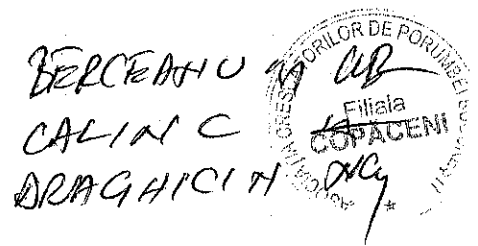 BERCEANU M
CALIN C
DRAGHICI N
ASOCIATIA CRESCATORILOR DE PORUMBEI BUCURESTI
Filiala
COPACENI